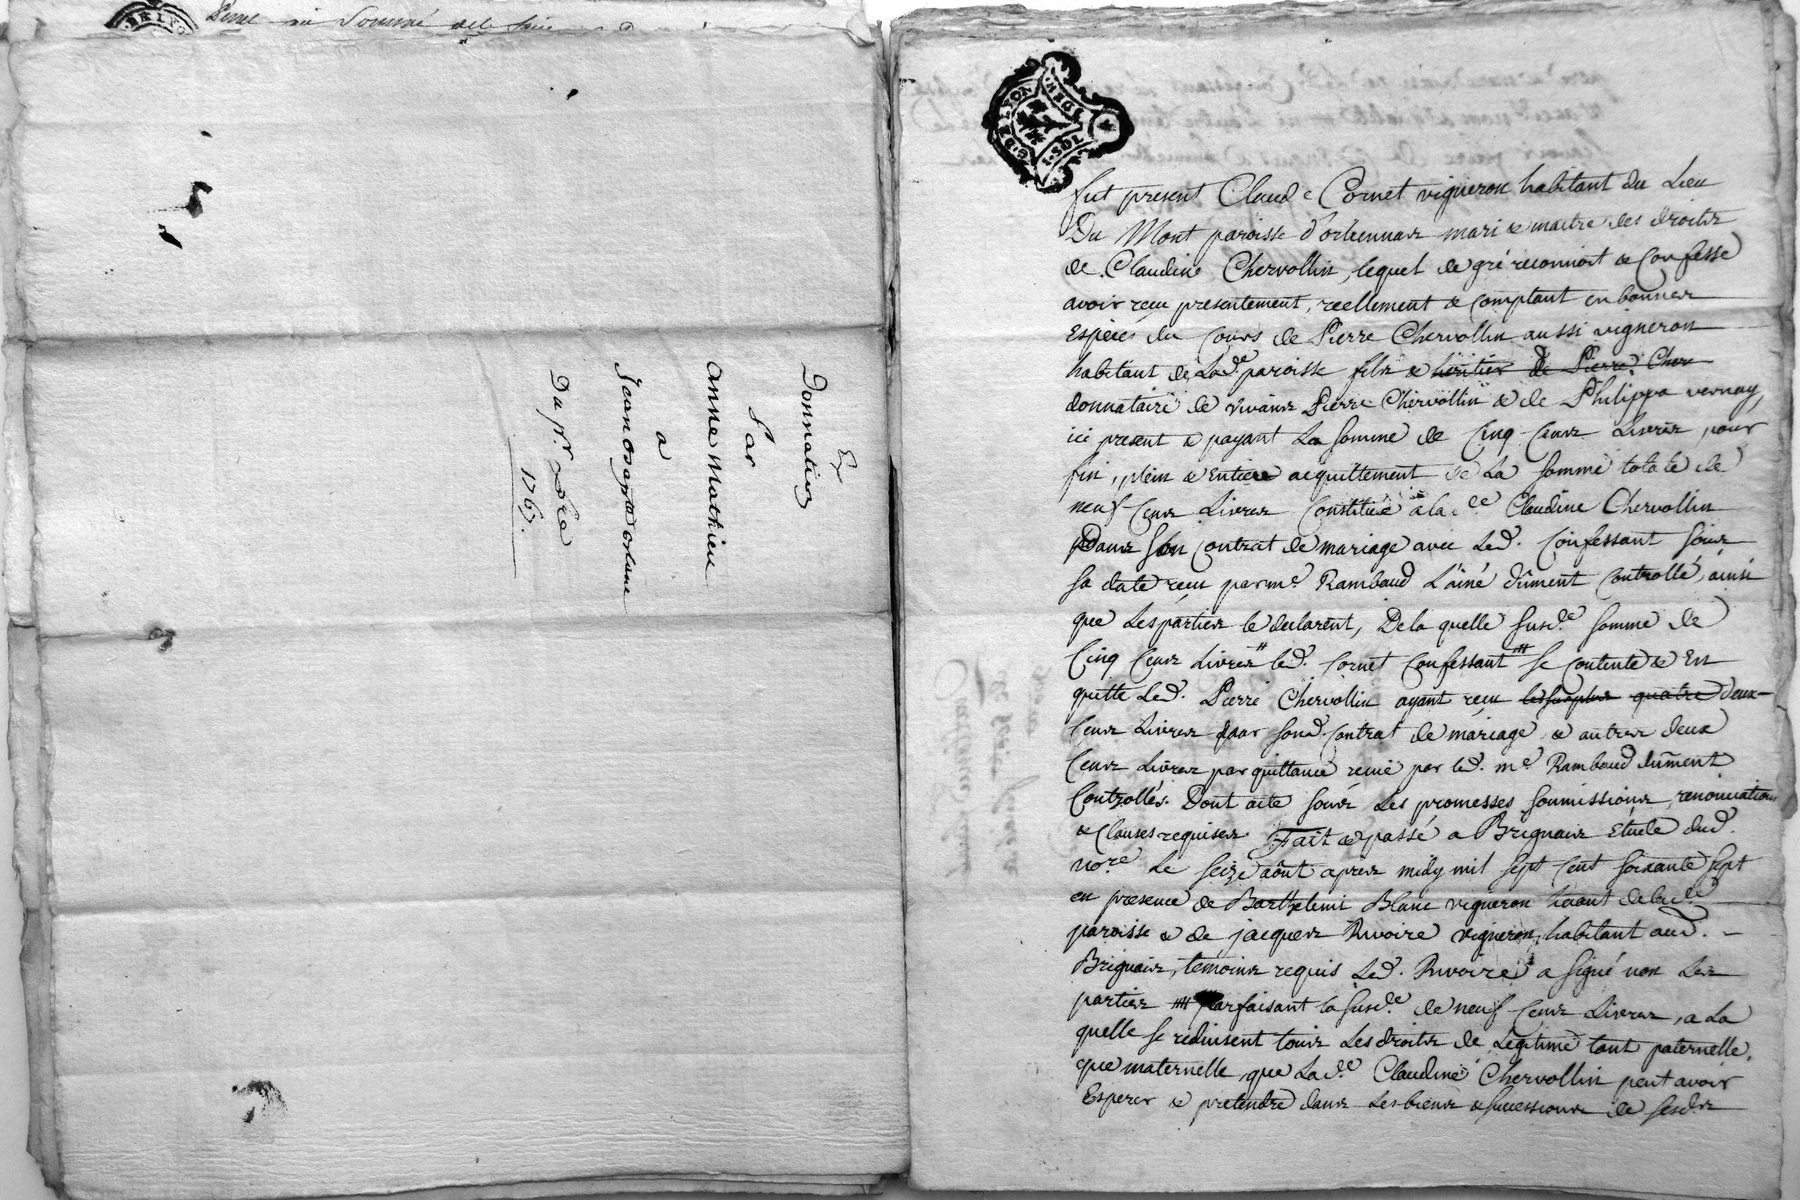 Donnation
Par
Anne Mathieu
a
Jean
Du pr.
1767.
G. DE LYON
fut present Claude Cornet vigneron habitant du Lieu
Du Mont paroisse d'orliennas mari & maitre des droits
de Claudine Chervollin, lequel de gré reconnoit & Confesse
avoir recu presentement, reellement & comptant en bonnes
Especes du Cours de Pierre Chervollin aussi vigneron
habitant de Lad.e paroisse fils & heritier de Pierre Cher
donnataire de vivans Pierre Chervollin & de Philippa vernay,
ici present & payant La somme de Cinq Cens Livres pour
fin, plein & Entier acquittement de La somme totale de
neuf Cens Livres Constituée a la d.e Claudine Chervollin
Dans son Contrat de mariage avec Led. Confessant sous
sa date recu par m.e Rambaud L'ainé dûment Controllé, ainsi
que Les parties le declarent, De la quelle susd.e somme de
Cinq Cens Livres led. Cornet Confessant se Contente & En
quitte Led. Pierre Chervollin ayant recu le surplus quatre deux
Cens Livres par sond. Contrat de mariage & autres deux
Cens Livres par quittance reçue par led. m.e Rambaud dûment
Controllés. Dont acte sous Les promesses soumissions, renonciations
& Clauses requises Fait & passé a Brignais Etude dud.
no.re Le seize août apres midy mil sept Cent soixante sept
en presence de Barthelemi Blanc vigneron de lad.e
paroisse & de jacques Rivoire vigneron, habitant aud.
Brignais, temoins requis Led. Rivoire a signé non Les
parties parfaisant la susd.e de neuf Cens Livres, a La
quelle se reduisent tous Les droits de Legitime tant paternelle,
que maternelle, que La d.e Claudine Chervollin peut avoir
Esperer & pretendre dans Les biens & successions de sesds